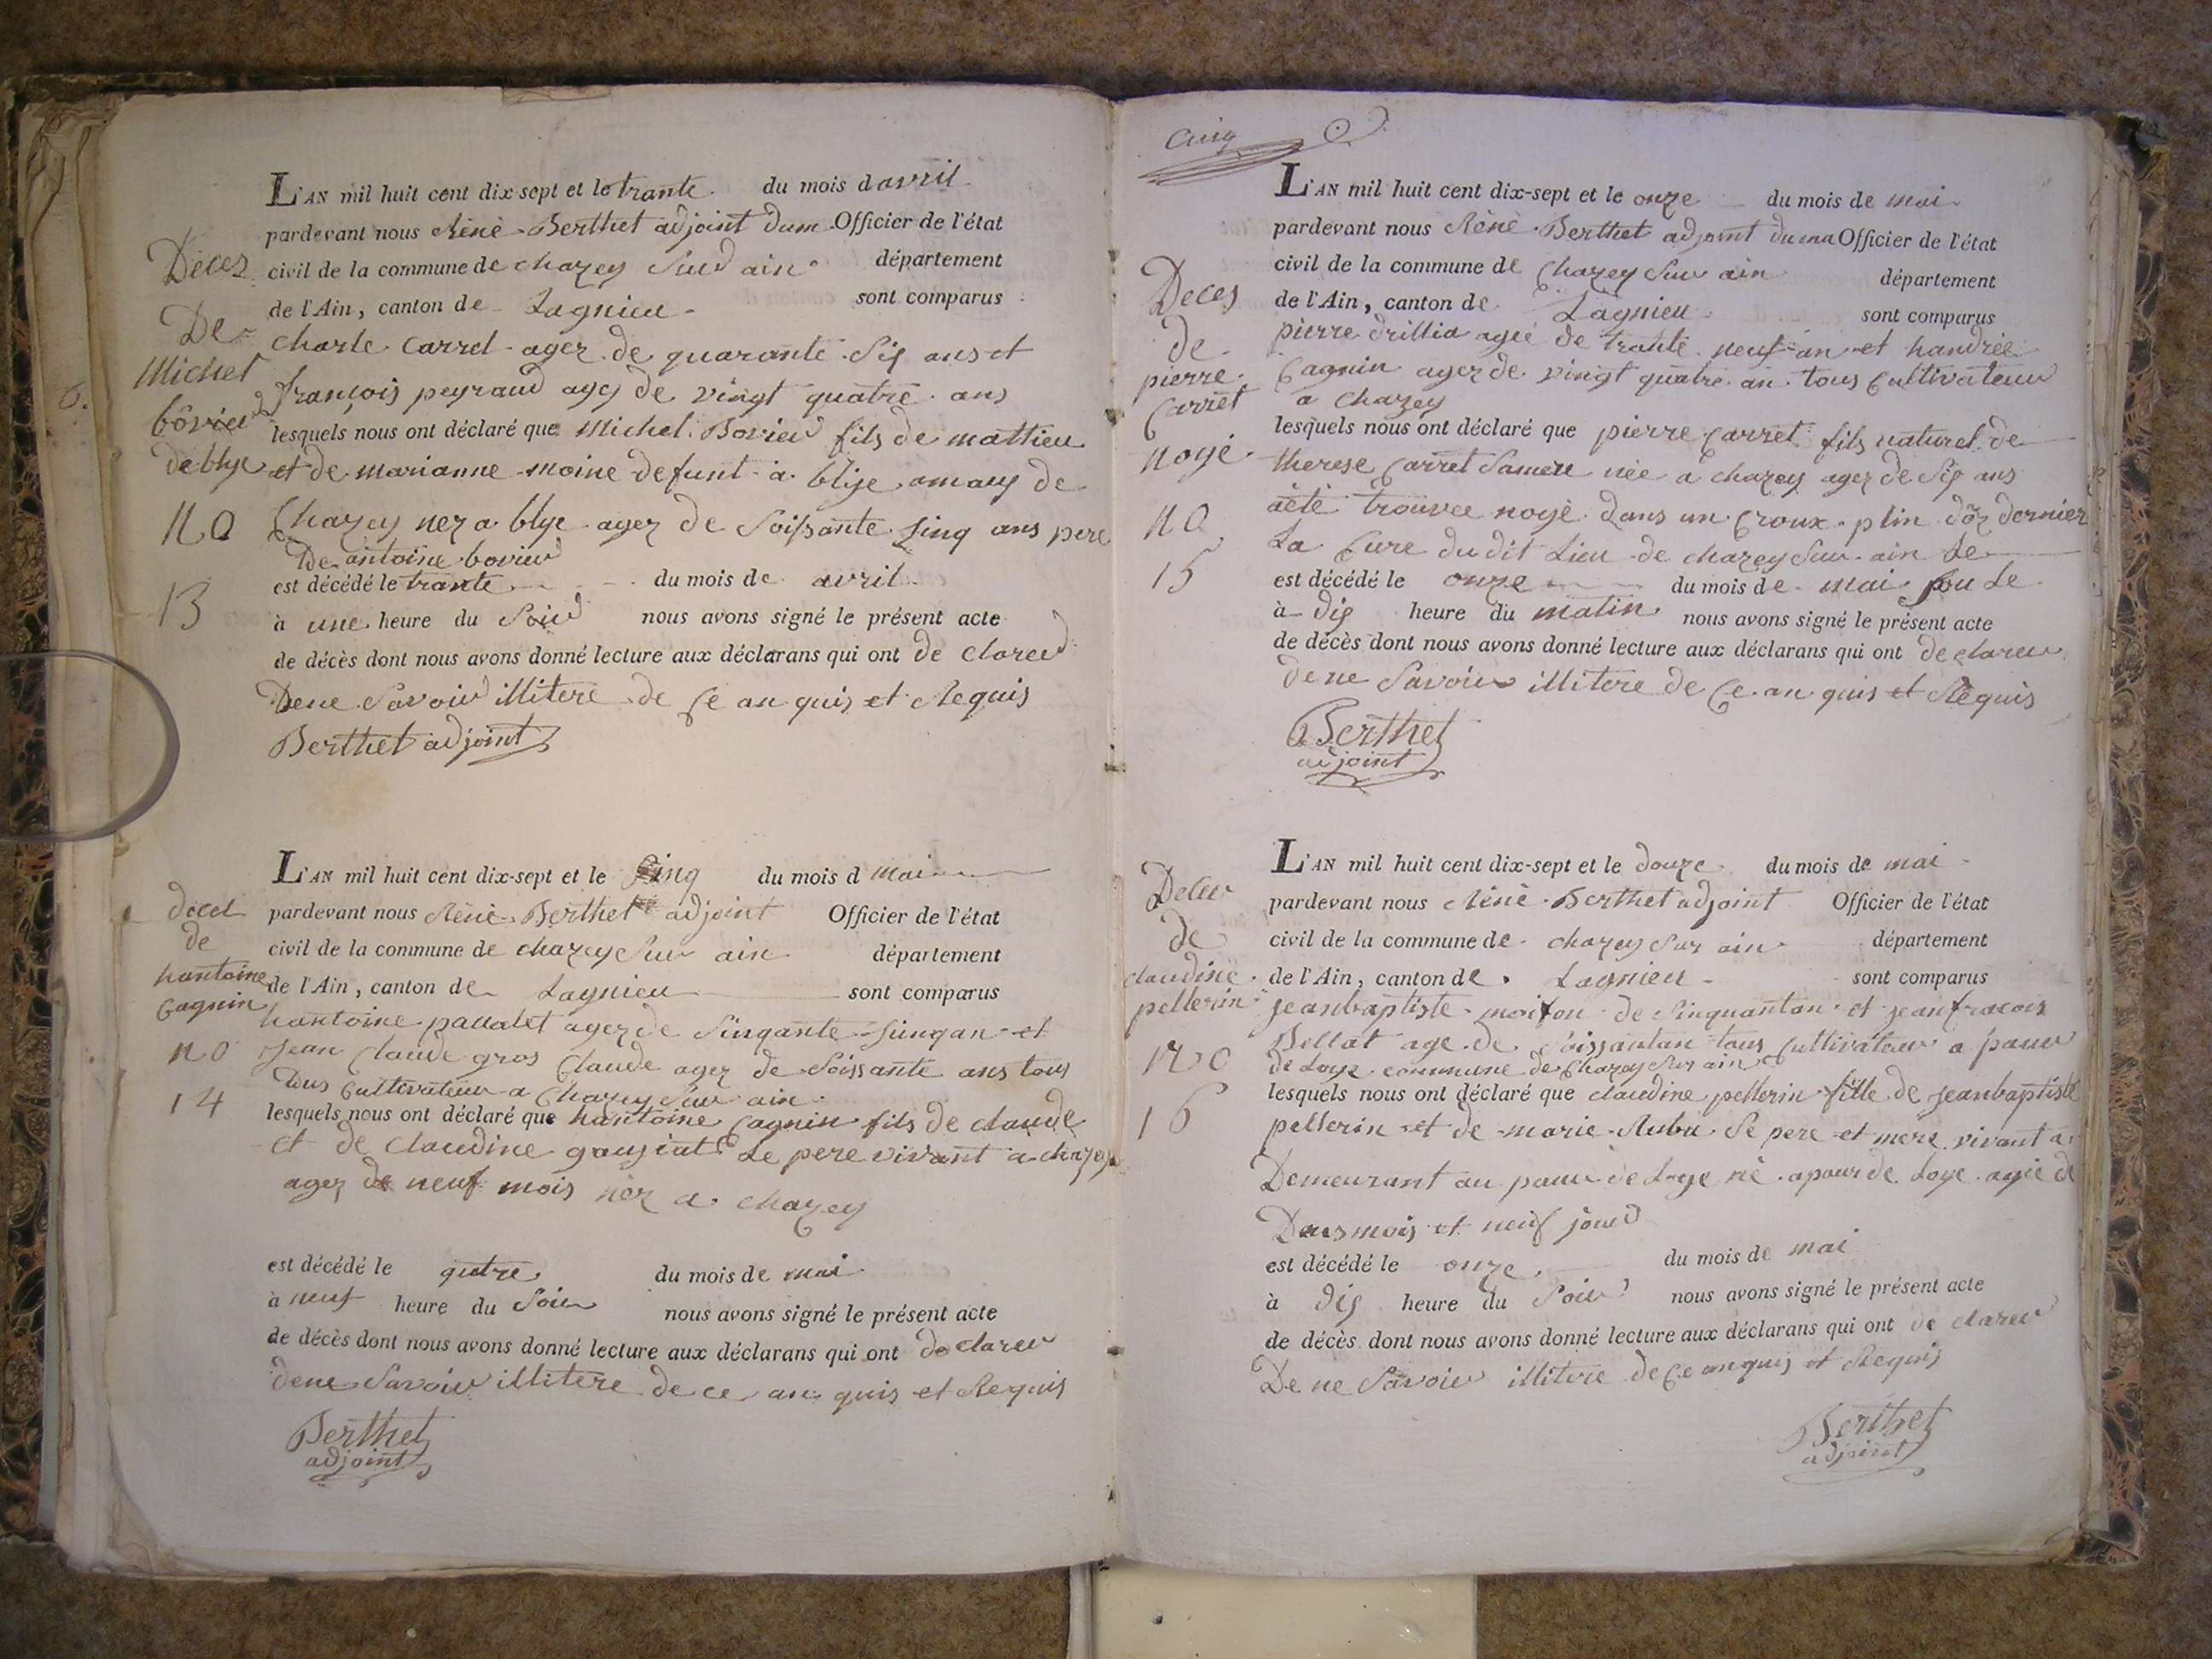 Deces
De
Michel
bôvier
de blye
no
13
L'AN mil huit cent dix-sept et le trante du mois d avril
pardevant nous Rènè Berthet adjoint dum Officier de l'état
civil de la commune de chazey Sur ain département
de l'Ain, canton de Lagnieu sont comparus
charle Carrel agez de quarante Six ans et
françois peyraud agez de vingt quatre ans
lesquels nous ont déclaré que Michel Bovier fils de mattieu
et de marianne moine defunt a blije amaux de
Chazey nez a blye agez de Soissante Sinq ans pere
De antoine bovier
est décédé le trante du mois de avril
à une heure du Soir nous avons signé le présent acte
de décès dont nous avons donné lecture aux déclarans qui ont de clarer
Dene Savoir illitere de Ce an quis et Requis
Berthet adjoint
deces
de
hantoine
Cagnin
no
14
L'AN mil huit cent dix-sept et le Sinq du mois d Mai
pardevant nous Rènè Berthet adjoint Officier de l'état
civil de la commune de chazey Sur ain département
de l'Ain, canton de Lagnieu sont comparus
hantoine pallatet agez de Sinqante Sinqan et
Jean Claude gros Claude agez de Soissante ans tous
tous Cultivateur a Chazey Sur ain
lesquels nous ont déclaré que hantoine Cagnin fils de claude
et de Claudine le pere vivant a chazey
agez de neuf mois nèz a chazey
est décédé le qutre du mois de mai
à neuf heure du Soir nous avons signé le présent acte
de décès dont nous avons donné lecture aux déclarans qui ont de clarer
dene Savoir illitere de ce an quis et Requis
Berthet
adjoint
Cinq
Deces
de
pierre
Carret
noyé
no
15
L'AN mil huit cent dix-sept et le onze du mois de mai
pardevant nous Rènè Berthet adjoint du ma Officier de l'état
civil de la commune de Chazey Sur ain département
de l'Ain, canton de Lagnieu sont comparus
pierre drillia ageé de trante neuf an et handrée
Cagnin agez de vingt quatre an tous Cultivateur
a Chazey
lesquels nous ont déclaré que pierre Carret fils naturel de
therese Carret Samere née a chazey agez de Six ans
aètè trouvee noyé dans un Croux plin dôz dernier
La Cure du dit Lieu de chazey Sur ain Le
est décédé le onze du mois de mai Le
à dix heure du matin nous avons signé le présent acte
de décès dont nous avons donné lecture aux déclarans qui ont de clarer
de ne Savoir illitere de Ce an quis et Requis
Berthet
adjoint
Deces
de
claudine
pellerin
no
16
L'AN mil huit cent dix-sept et le douze du mois de mai
pardevant nous Rènè Berthet adjoint Officier de l'état
civil de la commune de chazey Sur ain département
de l'Ain, canton de Lagnieu sont comparus
Jeanbaptiste de Sinquantan et jeanfracois
Bellat age de Soissantan tous Cultivateur a paur
de Loye commune de Chazey Sur ain
lesquels nous ont déclaré que claudine pellerin fille de jeanbaptiste
pellerin et de marie Rubu Se pere et mere vivant a
Demeurant au paur de Loye né apaur de Loye agée de
Deus mois et neuf jour
est décédé le onze du mois de mai
à dix heure du Soir nous avons signé le présent acte
de décès dont nous avons donné lecture aux déclarans qui ont de clarer
De ne Savoir illitere de Ce an quis et Requis
Berthet
adjoint